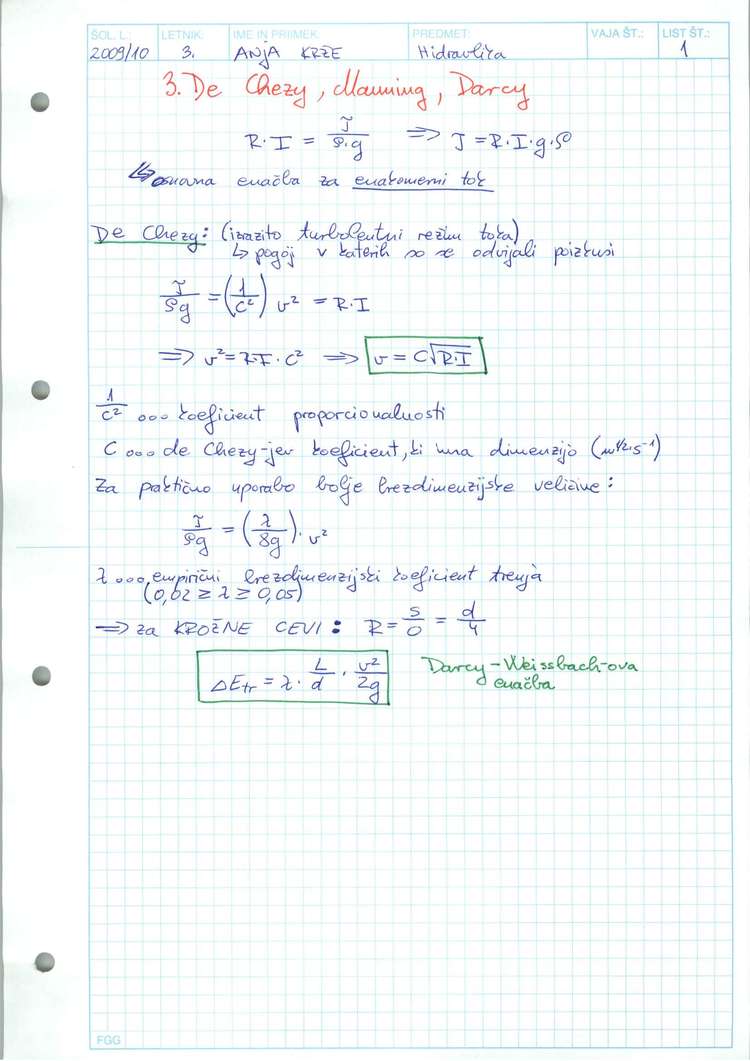 ŠOL. L.: LETNIK: IME IN PRIIMEK: PREDMET: VAJA ŠT.: LIST ŠT.:
2009/10 3. ANJA KRŽE Hidravlika 1
3. De Chezy, Manning, Darcy
R·I = τ/(ρ·g) => τ = R·I·g·ρ
↳ osnovna enačba za enakomerni tok
De Chezy: (izrazito turbolentni režim toka)
↳ pogoji v katerih so se odvijali poizkusi
τ/ρg = (1/C²) v² = R·I
=> v² = R·I·C² => v = C√R·I
1/C² ... koeficient proporcionalnosti
C ... de Chezy-jev koeficient, ki ima dimenzijo (m^1/2·s⁻¹)
Za praktično uporabo bolje brezdimenzijske veličine:
τ/ρg = (λ/8g)·v²
λ ... empirični brezdimenzijski koeficient trenja
(0,02 ≥ λ ≥ 0,05)
=> za KROŽNE CEVI: R = S/O = d/4
ΔEtr = λ · L/d · v²/2g Darcy-Weissbach-ova
enačba
FGG